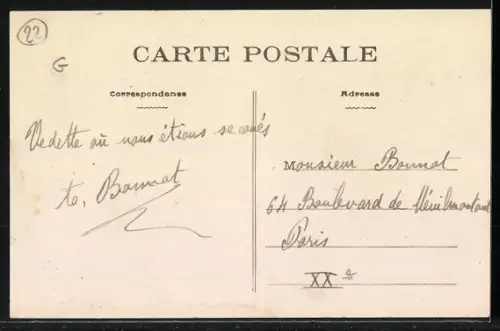 22
G
CARTE POSTALE
Correspondance
Adresse
Vedette où nous étions secoués
to, Bonnat
Monsieur Bonnat
64 Boulevard de Ménilmontant
Paris
XXe